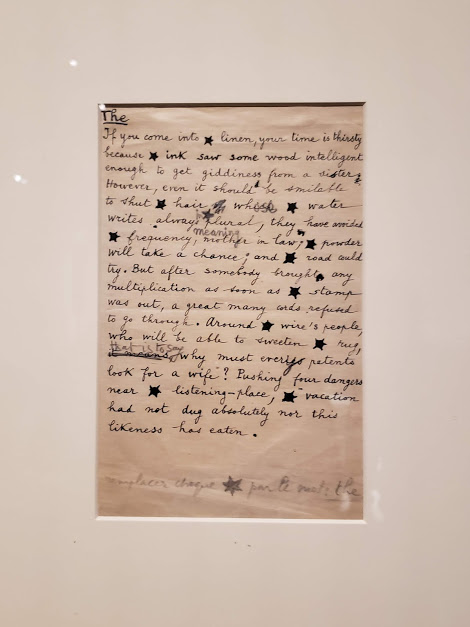 The
If you come into ★ linen, your time is thirsty
because ★ ink saw some wood intelligent
enough to get giddiness from a sister.
However, even it should be smilable
to shut ★ hair of which ★ water
writes always plural, they have avoided
meaning
★ frequency, mother in law; ★ powder
will take a chance; and ★ road could
try. But after somebody brought any
multiplication as soon as ★ stamp
was out, a great many cords refused
to go through. Around ★ wire's people,
who will be able to sweeten ★ rug,
that is to say
it means, why must every patents
look for a wife? Pushing four dangers
near ★ listening-place, ★ vacation
had not dug absolutely nor this
likeness has eaten.
remplacer chaque ★ par le mot: the